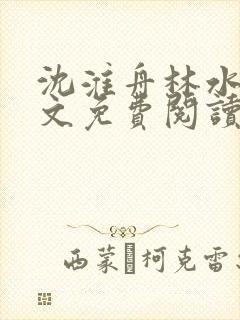 沈淮舟林水
文免費閱讀
西蒙 柯克雷